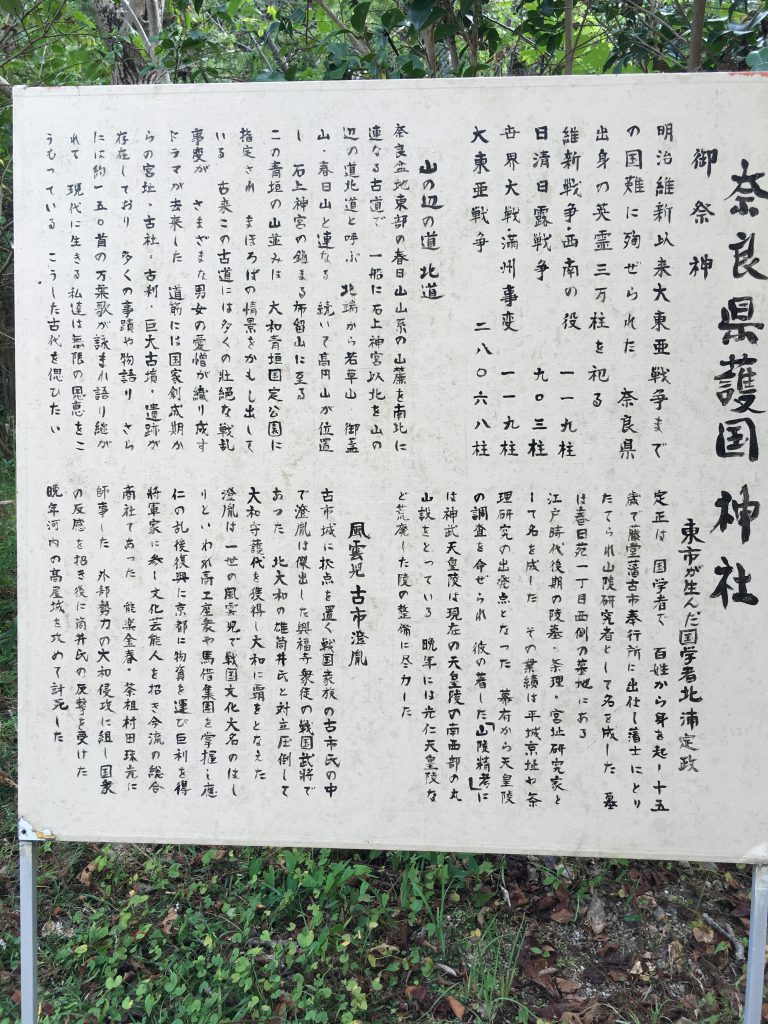 奈良県護国神社
御祭神
明治維新以来大東亜戦争まで
の国難に殉ぜられた 奈良県
出身の英霊三万柱を祀る
維新戦争・西南の役 一一九柱
日清日露戦争 九〇三柱
世界大戦満州事変 一一九柱
大東亜戦争 二八〇六八柱
山の辺の道 北道
奈良盆地東部の春日山山系の山麓を南北に
連なる古道で 一般に石上神宮以北を山の
辺の道北道と呼ぶ 北端から若草山・御蓋
山・春日山と連なる 続いて高円山が位置
し 石上神宮の鎮まる布留山に至る
この青垣の山並みは 大和青垣国定公園に
指定され まほろばの情景をかもし出して
いる 古来この古道には多くの壮絶な戦乱
事変が さまざまな男女の愛憎が織り成す
ドラマが去来した 道筋には国家創成期か
らの宮址・古社・古刹・巨大古墳・遺跡が
存在しており 多くの事蹟や物語り さら
には約一五〇首の万葉歌が詠まれ語り継が
れて 現代に生きる私達は無限の恩恵をこ
うむっている こうした古代を偲びたい
東市が生んだ国学者北浦定政
定政は 国学者で 百姓から身を起し十五
歳で藤堂藩古市奉行所に出仕し藩士にとり
たてられ山陵研究者として名を成した 墓
は春日苑一丁目西側の墓地にある
江戸時代後期の陵墓・条理・宮址研究家と
して名を成した その業績は平城京址や条
理研究の出発点となった 幕府から天皇陵
の調査を命ぜられ 彼の著した「山陵精考」に
は神武天皇陵は現在の天皇陵の南西部の丸
山説をとっている 晩年には光仁天皇陵な
ど荒廃した陵の整備に尽力した
風雲児 古市澄胤
古市城に拠点を置く戦国家族の古市氏の中
で澄胤は傑出した興福寺衆徒の戦国武将で
あった 北大和の雄筒井氏と対立圧倒して
大和守護代を獲得し大和に覇をとなえた
澄胤は 一世の風雲児で戦国文化大名のはし
りといわれ高工座衆や馬借集団を掌握し応
仁の乱後復興に京都に物資を運び巨利を得
将軍家に参し文化芸能人を招き今流の総合
商社であった 能楽金春・茶祖村田珠光に
師事した 外部勢力の大和侵攻に組し国衆
の反感を招き後に筒井氏の反撃を受けた
晩年河内の高屋城を攻めて討死した